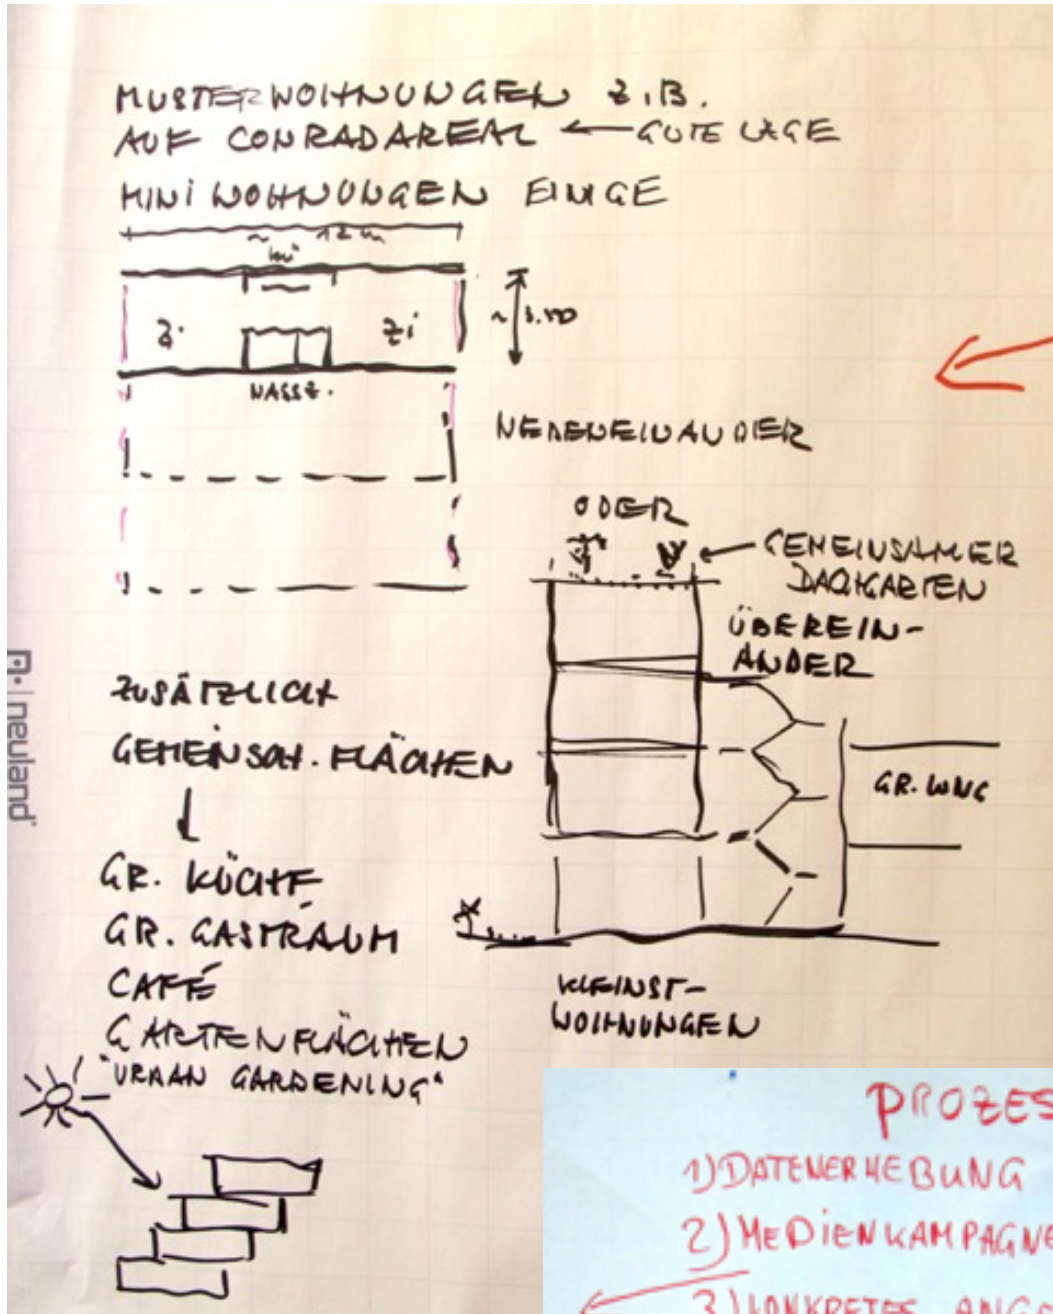 MUSTERWOHNUNGEN Z.B.
AUF CONRADAREAL ← GUTE LAGE
MINI WOHNUNGEN EINIGE
~ 12 m
Zi
NASSZ.
NEBENEINANDER
ODER
GEMEINSAMER
DACHGARTEN
ÜBEREIN-
ANDER
GR. WNG
KLEINST-
WOHNUNGEN
ZUSÄTZLICH
GEMEINSCH. FLÄCHEN
GR. KÜCHE
GR. GASTRAUM
CAFÉ
GARTENFLÄCHEN
"URBAN GARDENING"
neuland
PROZES
1) DATENERHEBUNG
2) MEDIENKAMPAGNE
3) KONKRETES ANGE